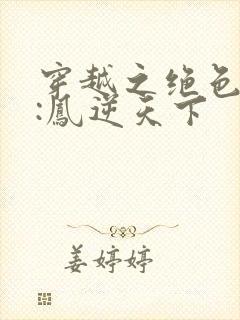 穿越之绝色
:凰逆天下
姜婷婷